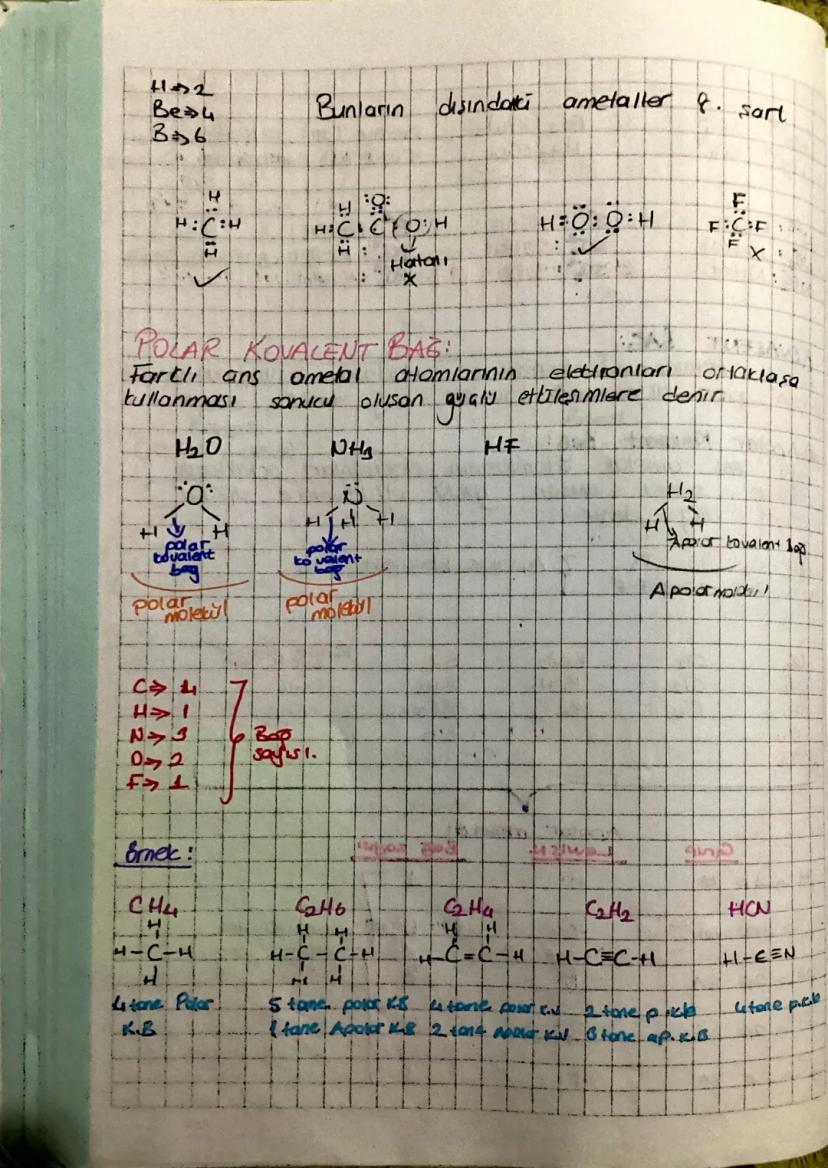 H⇒2
Be⇒4
B⇒6
Bunların dışındaki ametaller 8. şart
H
H:C:H
H
H :O:
H:C:C:O:H
H
Hatalı
X
H:O:O:H
✓
F
F:C:F
F
X
✓
POLAR KOVALENT BAĞ:
Farklı cins ametal atomlarının elektronları ortaklaşa
kullanması sonucu oluşan güçlü etkileşimlere denir
H2O NH3 HF
O
H H
polar
kovalent
bağ
polar
molekül
N
H H H
polar
kovalent
bağ
polar
molekül
H2
H H
Apolar kovalent bağ
Apolar molekül
C⇒ 4
H⇒ 1
N⇒ 3
O⇒ 2
F⇒ 1
Bağ
sayısı.
Örnek:
CH4 C2H6 C2H4 C2H2 HCN
H
H-C-H
H
H H
H-C-C-H
H H
H H
H-C=C-H
H-C≡C-H
H-C≡N
4 tane Polar
K.B
5 tane polar K.B
1 tane Apolar K.B
4 tane polar K.B
2 tane apolar K.B
2 tane p.k.b
3 tane ap.K.B
4 tane p.k.b